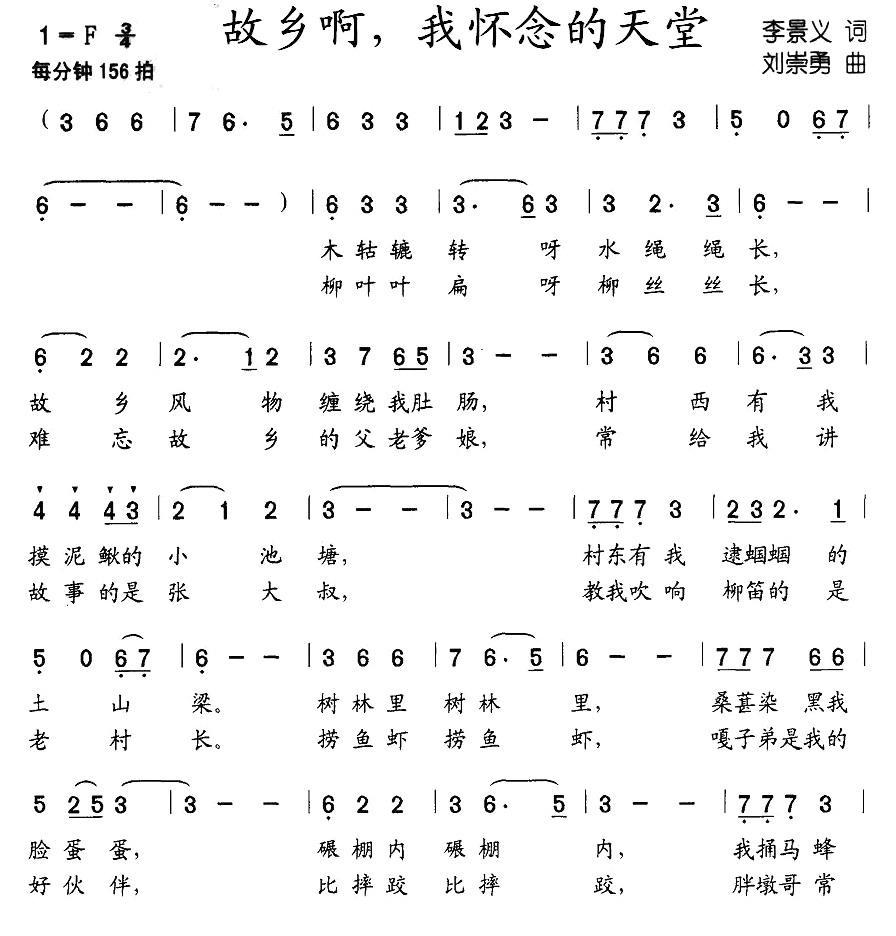 故乡啊，我怀念的天堂
1=F 3/4
每分钟156拍
李景义 词
刘崇勇 曲
(3 6 6 |7 6· 5 |6 3 3 |1 2 3 - |7 7 7 3 |5 0 6 7 |
6 - - |6 - - ) |6 3 3 |3· 6 3 |3 2· 3 |6 - - |
木轱辘转呀水绳绳长，
柳叶叶扁呀柳丝丝长，
6 2 2 |2· 1 2 |3 7 6 5 |3 - - |3 6 6 |6· 3 3 |
故乡风物缠绕我肚肠，村西有我
难忘故乡的父老爹娘，常给我讲
4 4 4 3 |2 1 2 |3 - - |3 - - |7 7 7 3 |2 3 2· 1 |
摸泥鳅的小池塘，村东有我逮蝈蝈的
故事的是张大叔，教我吹响柳笛的是
5 0 6 7 |6 - - |3 6 6 |7 6· 5 |6 - - |7 7 7 6 6 |
土山梁。树林里树林里，桑葚染黑我
老村长。捞鱼虾捞鱼虾，嘎子弟是我的
5 2 5 3 |3 - - |6 2 2 |3 6· 5 |3 - - |7 7 7 3 |
脸蛋蛋，碾棚内碾棚内，我捅马蜂
好伙伴，比摔跤比摔跤，胖墩哥常